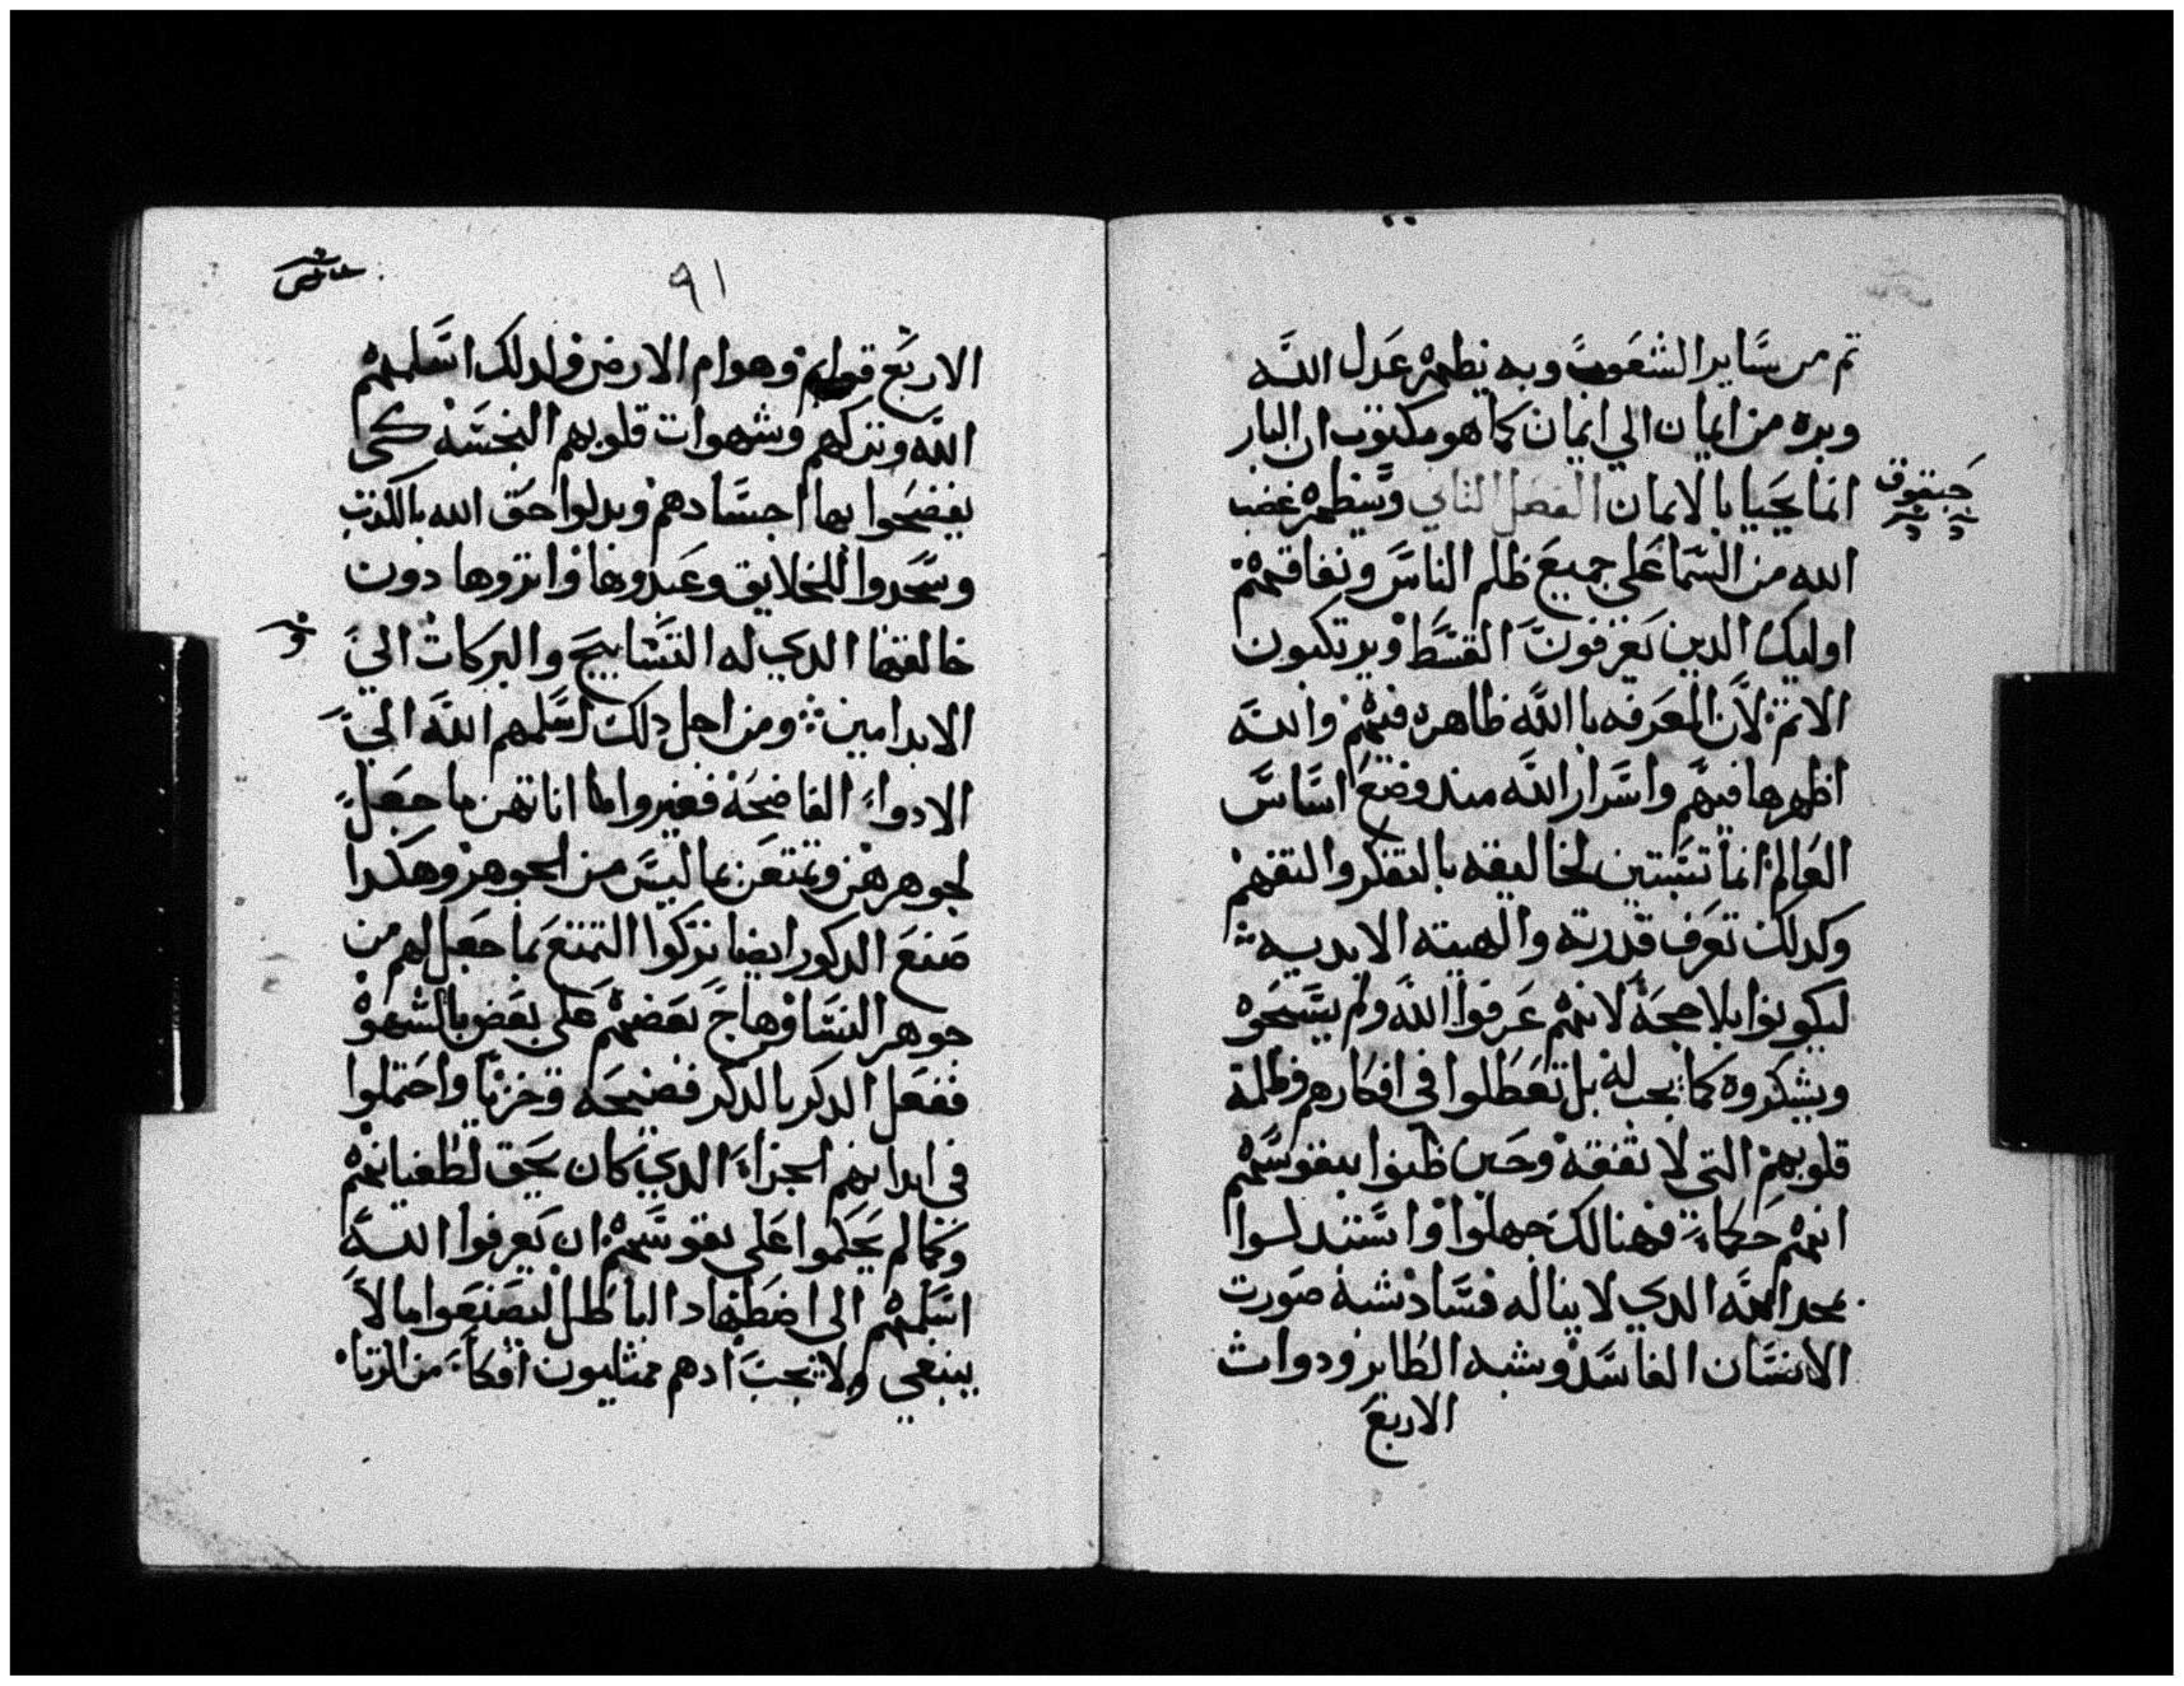 تم من ساير الشعوب وبه يظهر عدل الله
وبره من ايمان الي ايمان كما هو مكتوب ان البار
انما يحيا بالايمان الفصل الثاني وسيظهر غضب
حبقوق
الله من السما علي جميع ظلم الناس ونفاقهم
اوليك الدين يعرفون القسط ويرتكبون
الاتم لان المعرفه باالله ظاهره فيهم والله
اظهرها فيهم واسرار الله مند وضع اساس
العالم انما تتبتين لخاليقه بالتفكر والتفهم
وكدلك تعرف قدرته والهيته الابديه
ليكونوا بلا حجة لانهم عرفوا الله ولم يسبحوه
ويشكروه كما يجب له بل تعطلوا في افكارهم وظلمة
قلوبهم التي لا تفقه وحين ظنوا بنفوسهم
انهم حكماء فهنالك جهلوا واستبدلوا
بمجد الله الدي لا يناله فساد شبه صورت
الانسان الفاسد وشبه الطاير ودوات
الاربع
عاش
٩١
الاربع قوايم وهوام الارض ولدلك اسلمهم
الله وتركهم وشهوات قلوبهم النجسه كى
يفضحوا بها اجسادهم وبدلوا حق الله بالكدب
وسجدوا للخلايق وعبدوها واتروها دون
خالقها الدي له التسابيح والبركات الي
الابد امين ومن اجل دلك اسلمهم الله الي
الادواء الفاضحة فغيروا اناتهن ما جعل
لجوهرهن وتمتعن بما ليس من الجوهر وهكدا
صنع الدكور ايضا تركوا التمتع بما جعل لهم من
جوهر النسا وهاج بعضهم على بعض بالشهوة
ففعل الدكر بالدكر فضيحة وخزيا واحتملوا
في ابدانهم الجزاء الدي كان يحق لطغيانهم
وكما لم يحكموا على نفوسهم ان يعرفوا الله
اسلمهم الى اضطهاد الباطل ليصنعوا ما لا
ينبغي ولا يجب ادهم ممتليون افكاء من الزنا